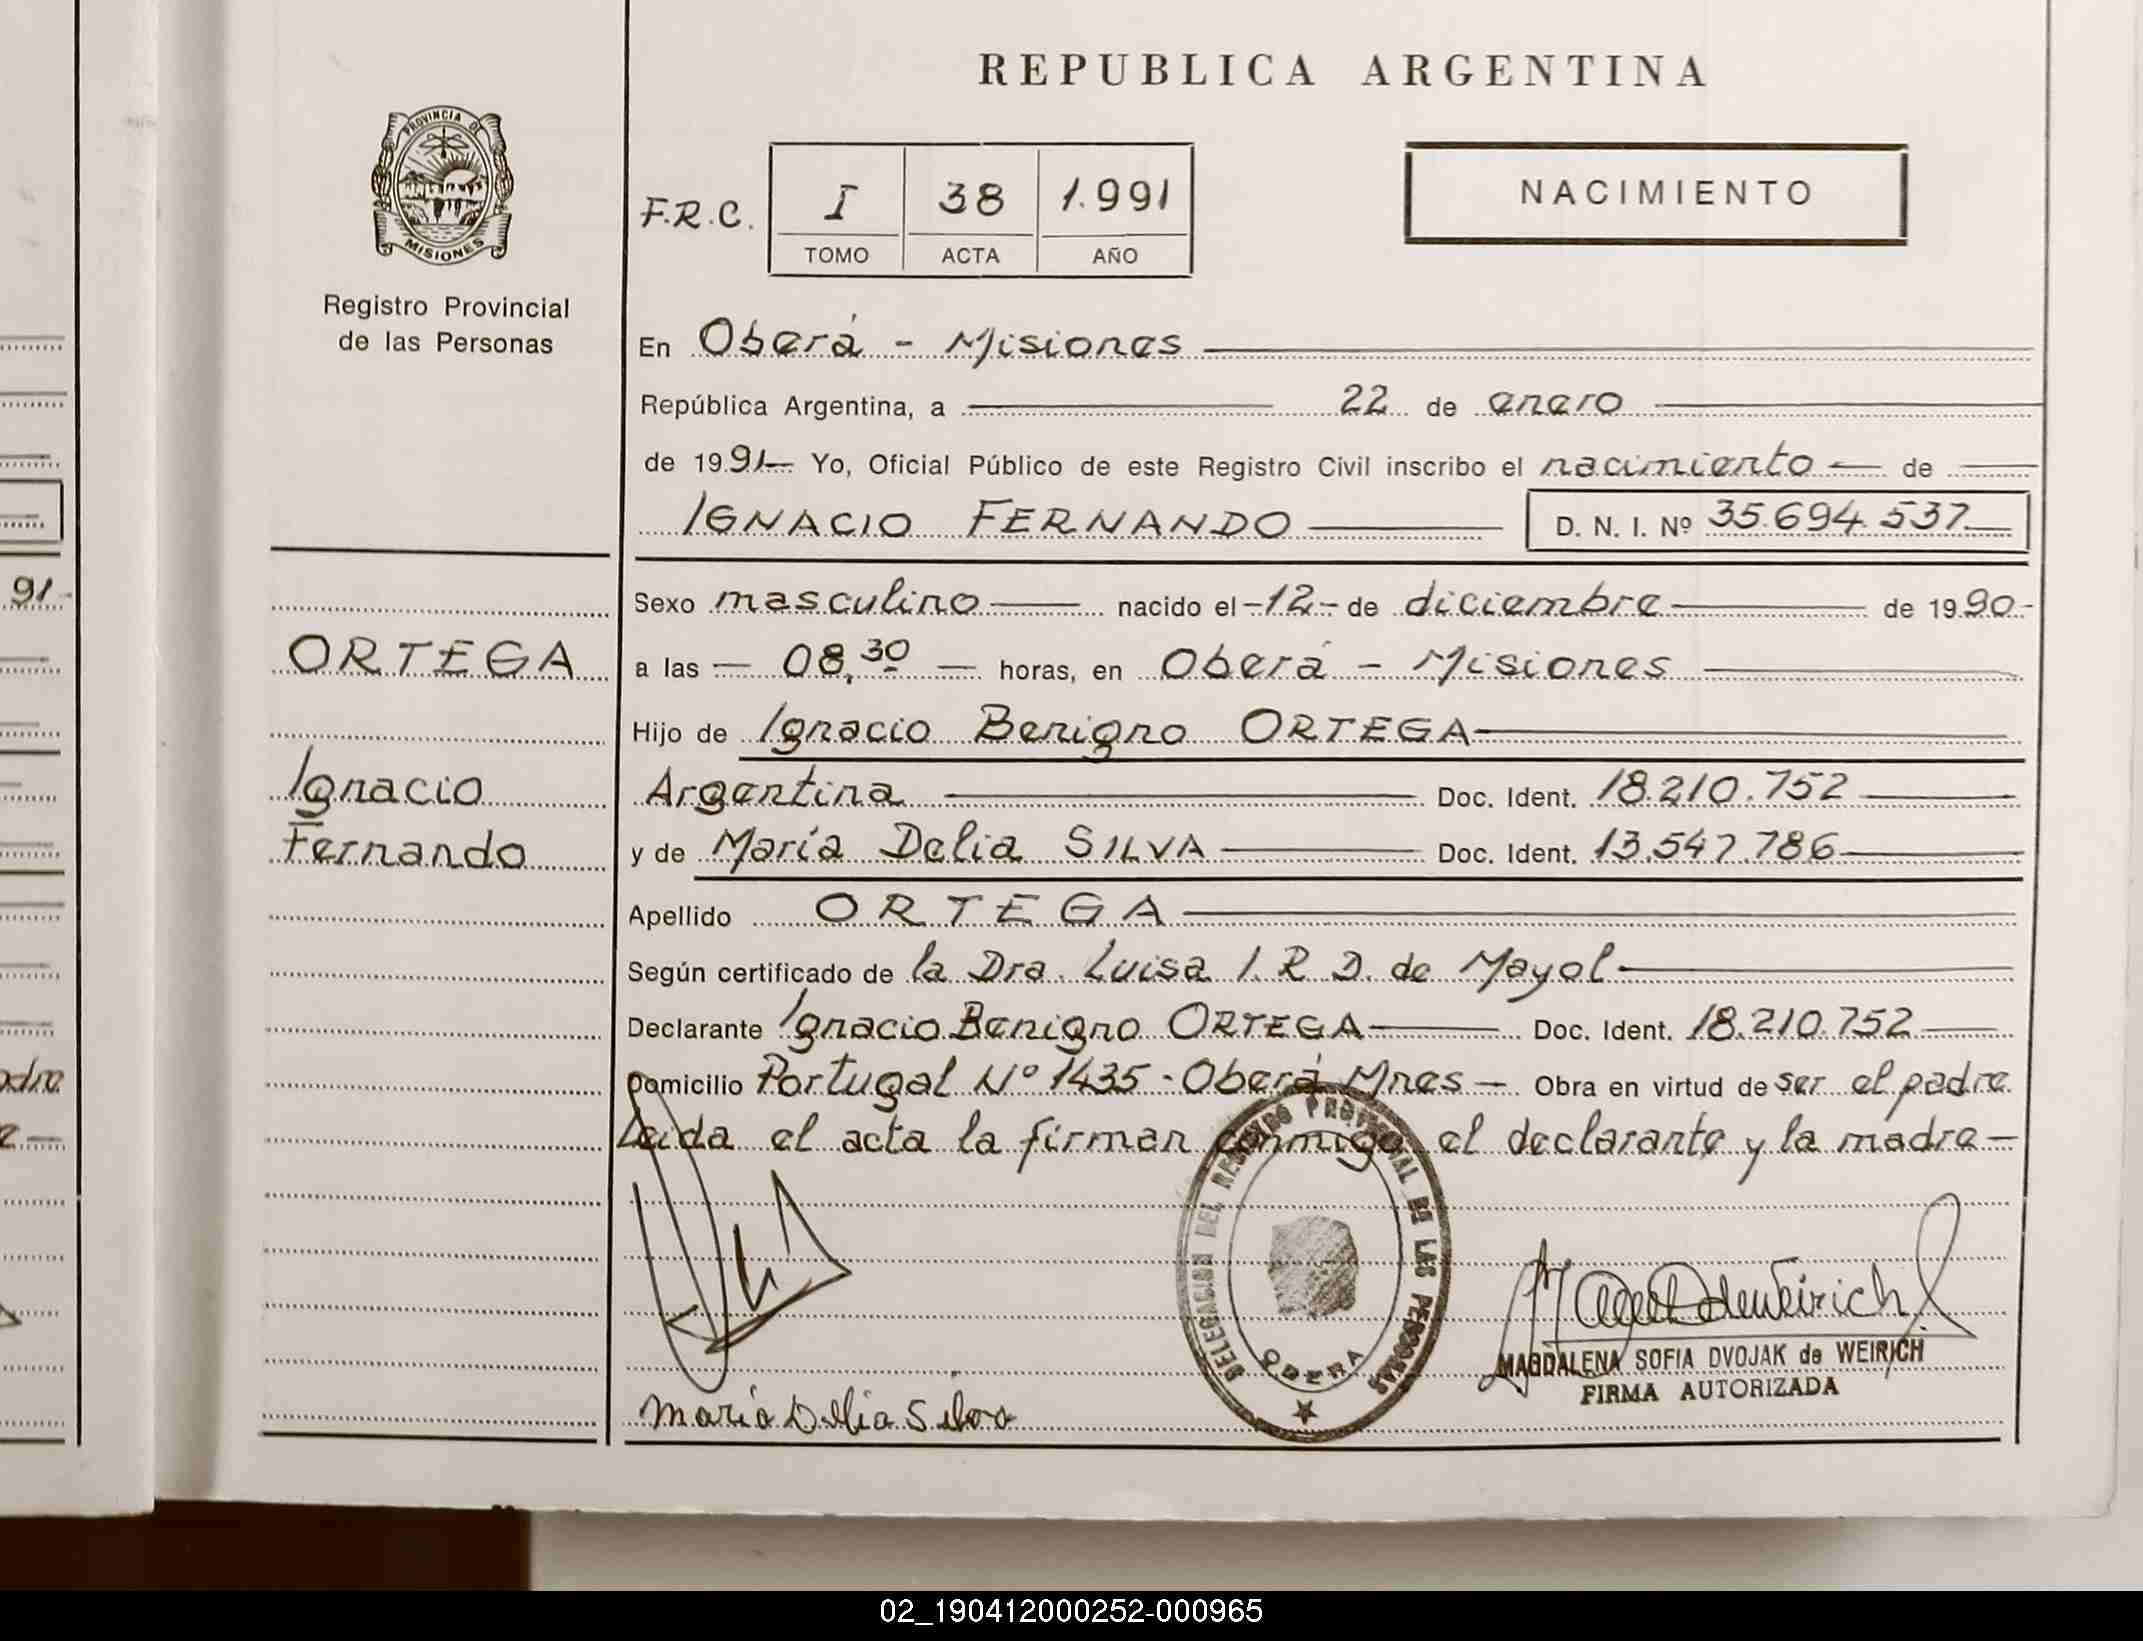 REPUBLICA ARGENTINA
PROVINCIA DE
MISIONES
Registro Provincial
de las Personas
F.R.C. I 38 1.991
TOMO ACTA AÑO
NACIMIENTO
En Oberá - Misiones
República Argentina, a 22 de enero
de 1991 Yo, Oficial Público de este Registro Civil inscribo el nacimiento de
IGNACIO FERNANDO D. N. I. Nº 35.694.537
91
ORTEGA
Ignacio
Fernando
Sexo masculino nacido el -12- de diciembre de 1990-
a las 08,30 horas, en Oberá - Misiones
Hijo de Ignacio Benigno ORTEGA
Argentina Doc. Ident. 18.210.752
y de María Delia SILVA Doc. Ident. 13.547.786
Apellido ORTEGA
Según certificado de la Dra. Luisa I. R D. de Mayol
Declarante Ignacio Benigno ORTEGA Doc. Ident. 18.210.752
Domicilio Portugal Nº 1435 - Oberá Mnes - Obra en virtud de ser el padre
Leida el acta la firman conmigo el declarante y la madre
DELEGACION DEL REGISTRO PROVINCIAL DE LAS PERSONAS
OBERA
MAGDALENA SOFIA DVOJAK de WEIRICH
FIRMA AUTORIZADA
María Delia Silva
02_190412000252-000965